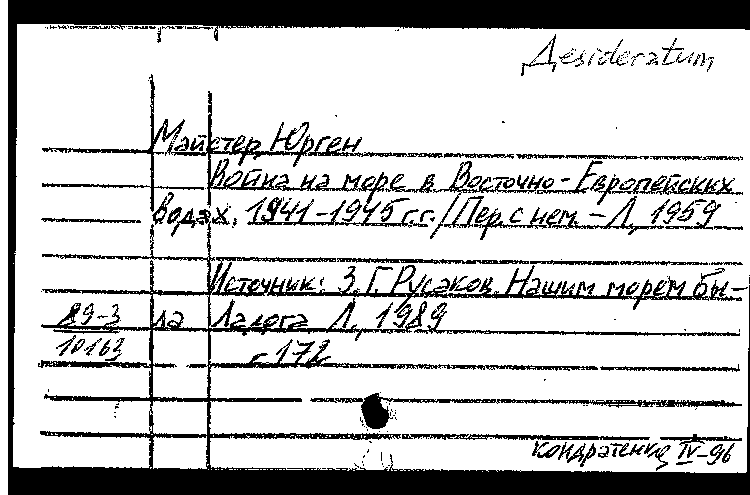 Desideratum
Майстер, Юрген
Война на море в Восточно-Европейских
водах, 1941-1945 г.г./Пер. с нем. - Л., 1959
Источник: З.Г. Русаков. Нашим морем бы-
89-3 ла Ладога. Л., 1989
10163 с 172
Кондратенко, IV-96